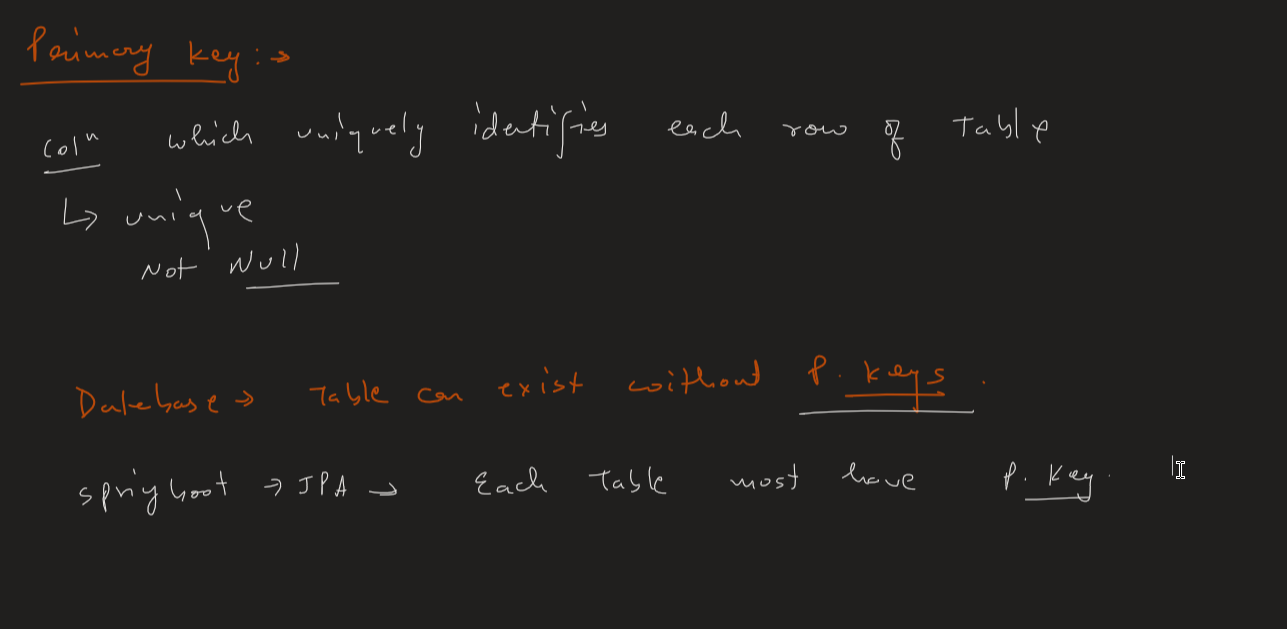 Primary key :→
Colⁿ which uniquely identifies each row of Table
↳ unique
Not Null
Database → Table can exist without P. keys.
springboot → JPA → Each Table most have P. Key.